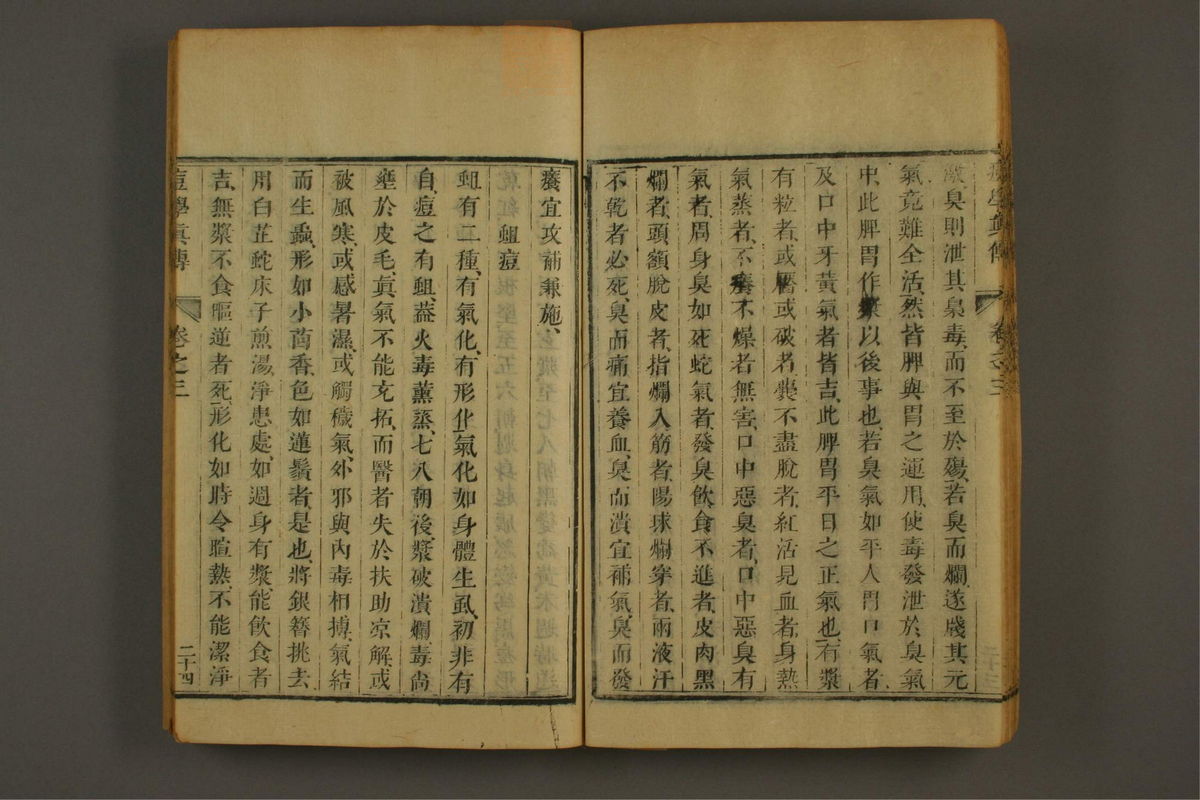 痘學眞傳 卷之三 二十三
臭則泄其臭毒而不至於殤若臭而爛遂戕其元
氣竟難全活然皆脾與胃之運用使毒發泄於臭氣
中此脾胃作漿以後事也若臭氣如平人胃口氣者
及口中牙黃氣者皆吉此脾胃平日之正氣也有漿
有粒者或靨或破者囊不盡脫者紅活見血者身熱
氣蒸者不癢不燥者無害口中惡臭者口中惡臭有
氣者周身臭如死蛇氣者發臭飲食不進者皮肉黑
爛者頭額脫皮者指爛入筋者陽球爛穿者兩液汗
不乾者必死臭而痛宜養血臭而潰宜補氣臭而發
癢宜攻補兼施
蛆痘
蛆有二種有氣化有形化氣化如身體生虱初非有
自痘之有蛆葢火毒薰蒸七八朝後漿破潰爛毒尚
壅於皮毛眞氣不能充拓而醫者失於扶助凉解或
被風寒或感暑濕或觸穢氣外邪與內毒相搏氣結
而生蟲形如小茴香色如蓮鬚者是也將銀簪挑去
用白芷蛇床子煎湯淨患處如週身有漿能飲食者
吉無漿不食嘔逆者死形化如時令暄熱不能潔淨
痘學眞傳 卷之三 二十四